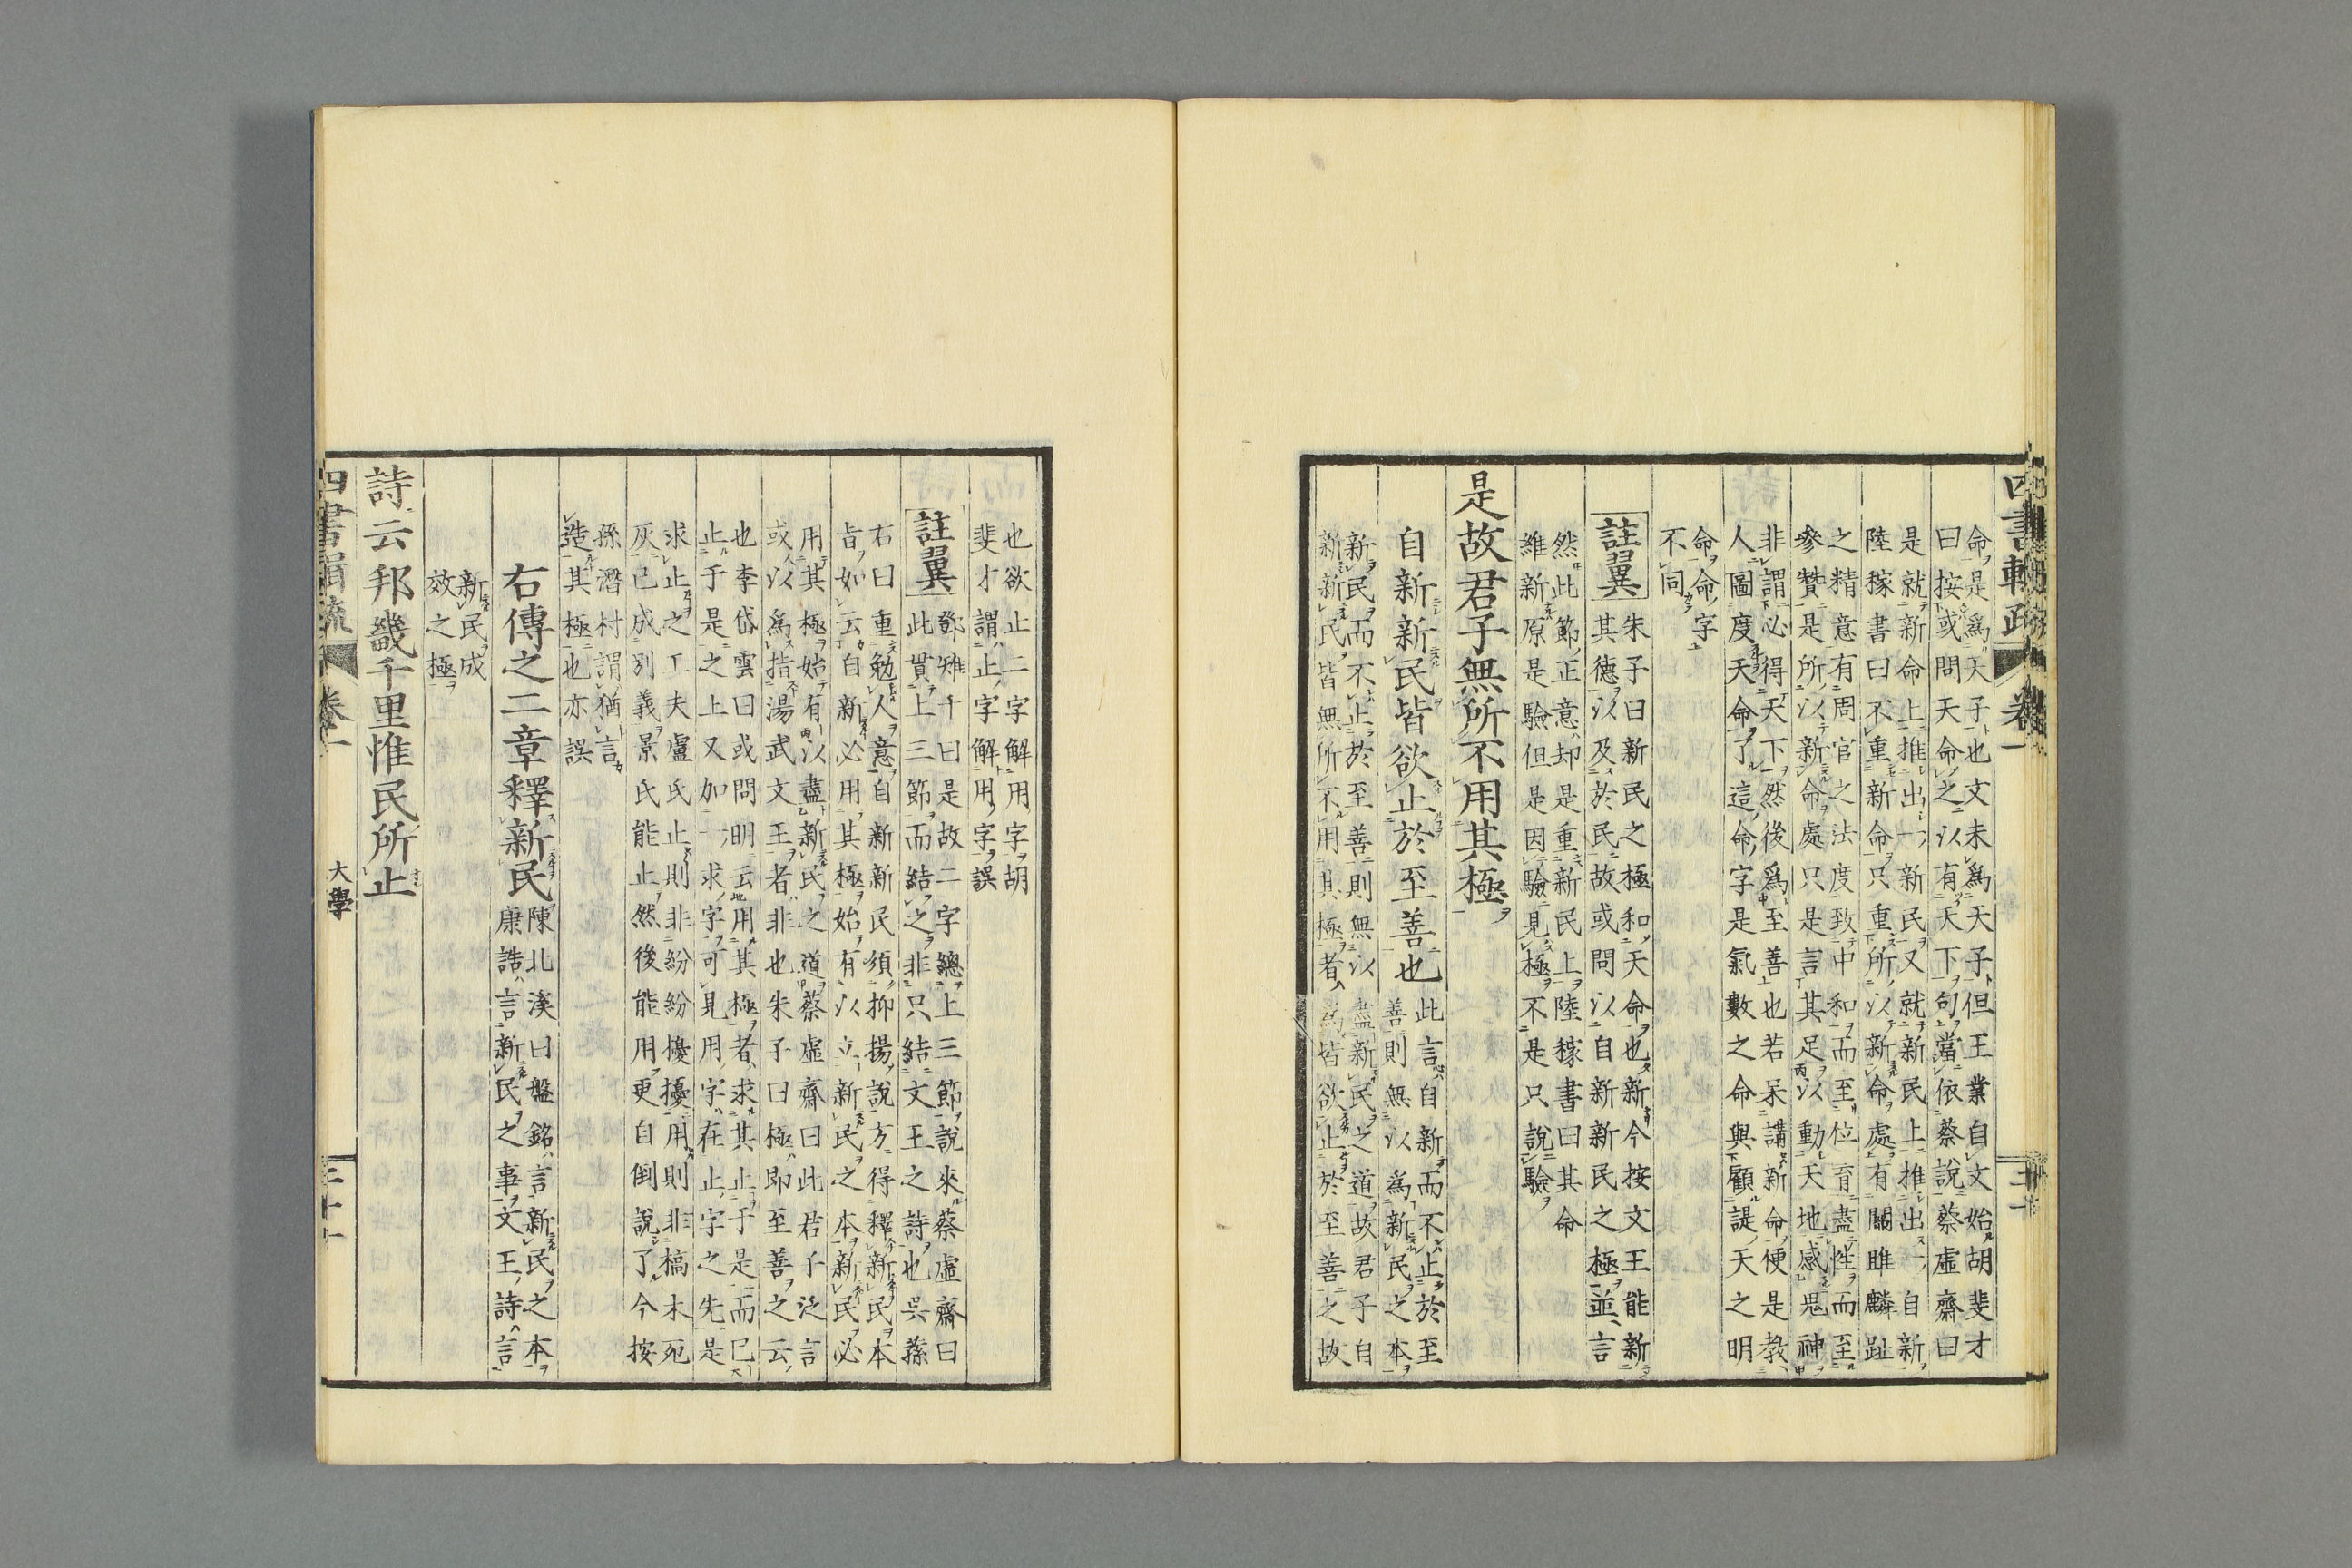 四書輯疏 卷一
命是爲天子也文未爲天子但王業自文始胡斐才
曰按或問天命之以有天下句當依蔡說蔡虛齋曰
是就新命上推出一新民又就新民上推出一自新
陸稼書曰不重新命只重所以新命處有關雎麟趾
之精意有周官之法度致中和而至位育盡性而至
參贊是所以新命處只是言其足以動天地感鬼神
非謂必得天下然後爲至善也若呆講新命便是教
人圖度天命了這命字是氣數之命與顧諟天之明
命命字
不同
註翼
朱子曰新民之極和天命也新今按文王能新
其德以及於民故或問以自新新民之極並言
然此節正意却是重新民上陸稼書曰其命
維新原是驗但是因驗見極不是只說驗
是故君子無所不用其極
自新新民皆欲止於至善也
此言自新而不止於至
善則無以爲新民之本
新民而不止於至善則無以盡新民之道故君子自
新新民皆無所不用其極者爲皆欲止於至善之故
也欲止二字解用字胡
斐才謂止字解用字誤
註翼
鄧雉千曰是故二字總上三節說來蔡虛齋曰
此貫上三節而結之非只結文王之詩也吳蓀
右曰重勉人意自新新民須抑揚說方得釋新民本
旨如云自新必用其極始有以立新民之本新民必
用其極始有以盡新民之道蔡虛齋曰此君子泛言
或以爲指湯武文王者非也朱子曰極即至善之云
也李岱雲曰或問明云用其極者求其止于是而已
止于是之上又加一求字可見用字在止字之先是
求止之工夫盧氏止則非紛紛擾擾用則非槁木死
灰已成別義景氏能止然後能用更自倒說了今按
孫潛村謂猶言
造其極也亦誤
右傳之二章釋新民
陳北溪曰盤銘言新民之本
康誥言新民之事文王詩言
新民成
效之極
詩云邦畿千里惟民所止
卷一
大學
三十一